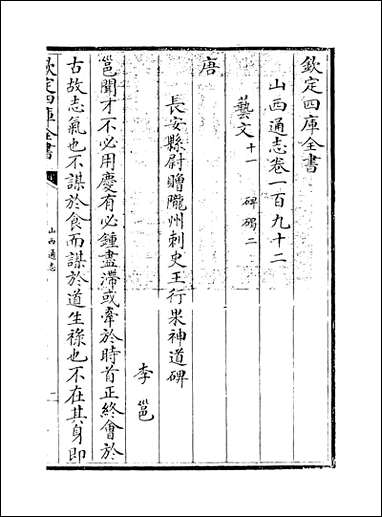 欽定四庫全書
山西通志卷一百九十二
藝文十一　碑碣二
唐
長安縣尉贈隴州刺史王行果神道碑
李邕
邕聞才不必用慶有必鍾盡滯或牽於時首正終會於
古故志氣也不謀於食而謀於道生祿也不在其身即
欽定四庫全書
山西通志